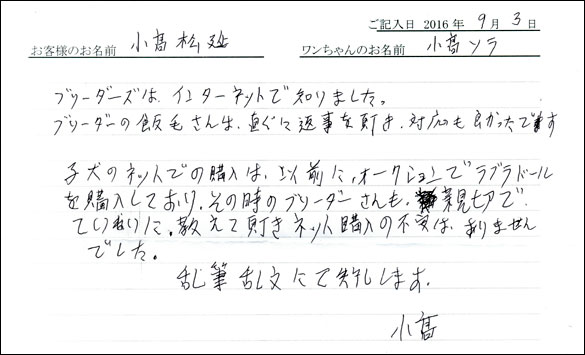 ご記入日 2016年 9月 3日
お客様のお名前 小髙 松延 ワンちゃんのお名前 小髙ソラ
ブリーダーズは、インターネットで知りました。
ブリーダーの飯毛さんは、直ぐに返事を頂き、対応も良かったです
子犬のネットでの購入は、以前に、オークションでラブラドール
を購入しており、その時のブリーダーさんも、親切で
ていねいに、教えて頂きネット購入の不安は、ありません
でした。
乱筆乱文にて失礼します。
小髙